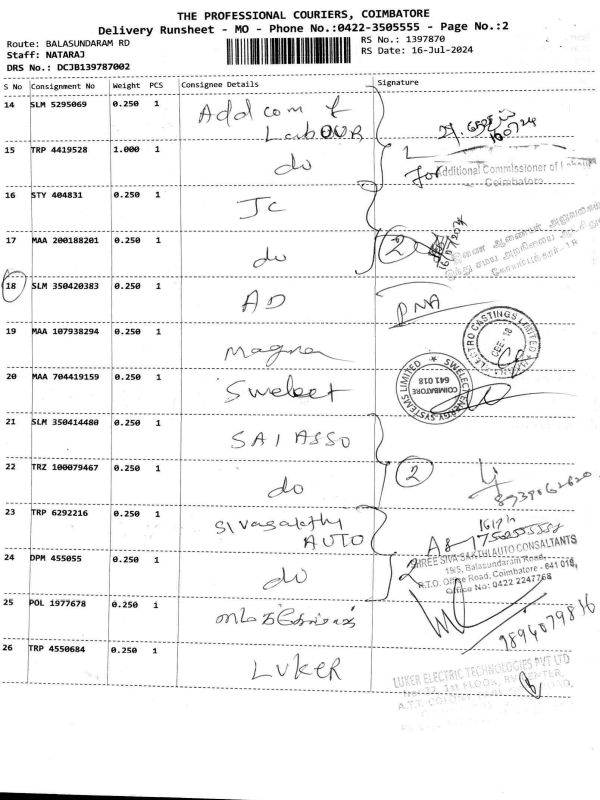 THE PROFESSIONAL COURIERS, COIMBATORE
Delivery Runsheet - MO - Phone No.:0422-3505555 - Page No.:2
Route: BALASUNDARAM RD
RS No.: 1397870
Staff: NATARAJ
RS Date: 16-Jul-2024
DRS No.: DCJB139787002
S No Consignment No Weight PCS Consignee Details Signature
14 SLM 5295069 0.250 1 Add com &
Labour
15 TRP 4419528 1.000 1 do 2
for Additional Commissioner of
Coimbatore
16 STY 404831 0.250 1 JC
17 MAA 200188201 0.250 1 do 2
18 SLM 350420383 0.250 1 AD DNA
19 MAA 107938294 0.250 1 Magna
ELECTRO CASTINGS LIMITED
CBE-18
20 MAA 704419159 0.250 1 Swelect
SWELECT ENERGY SYSTEMS LIMITED
COIMBATORE
641 018
21 SLM 350414480 0.250 1 SAI ASSO
22 TRZ 100079467 0.250 1 do 2
23 TRP 6292216 0.250 1 Sivasakthy
AUTO
24 DPM 455055 0.250 1 do 2
SHREE SIVA SAKTHI AUTO CONSULTANTS
19/5, Balasundaram Road,
R.T.O. Office Road, Coimbatore - 641 018,
Office No: 0422 2247768
25 POL 1977678 0.250 1
9894079836
26 TRP 4550684 0.250 1 LUKER
LUKER ELECTRIC TECHNOLOGIES PVT LTD